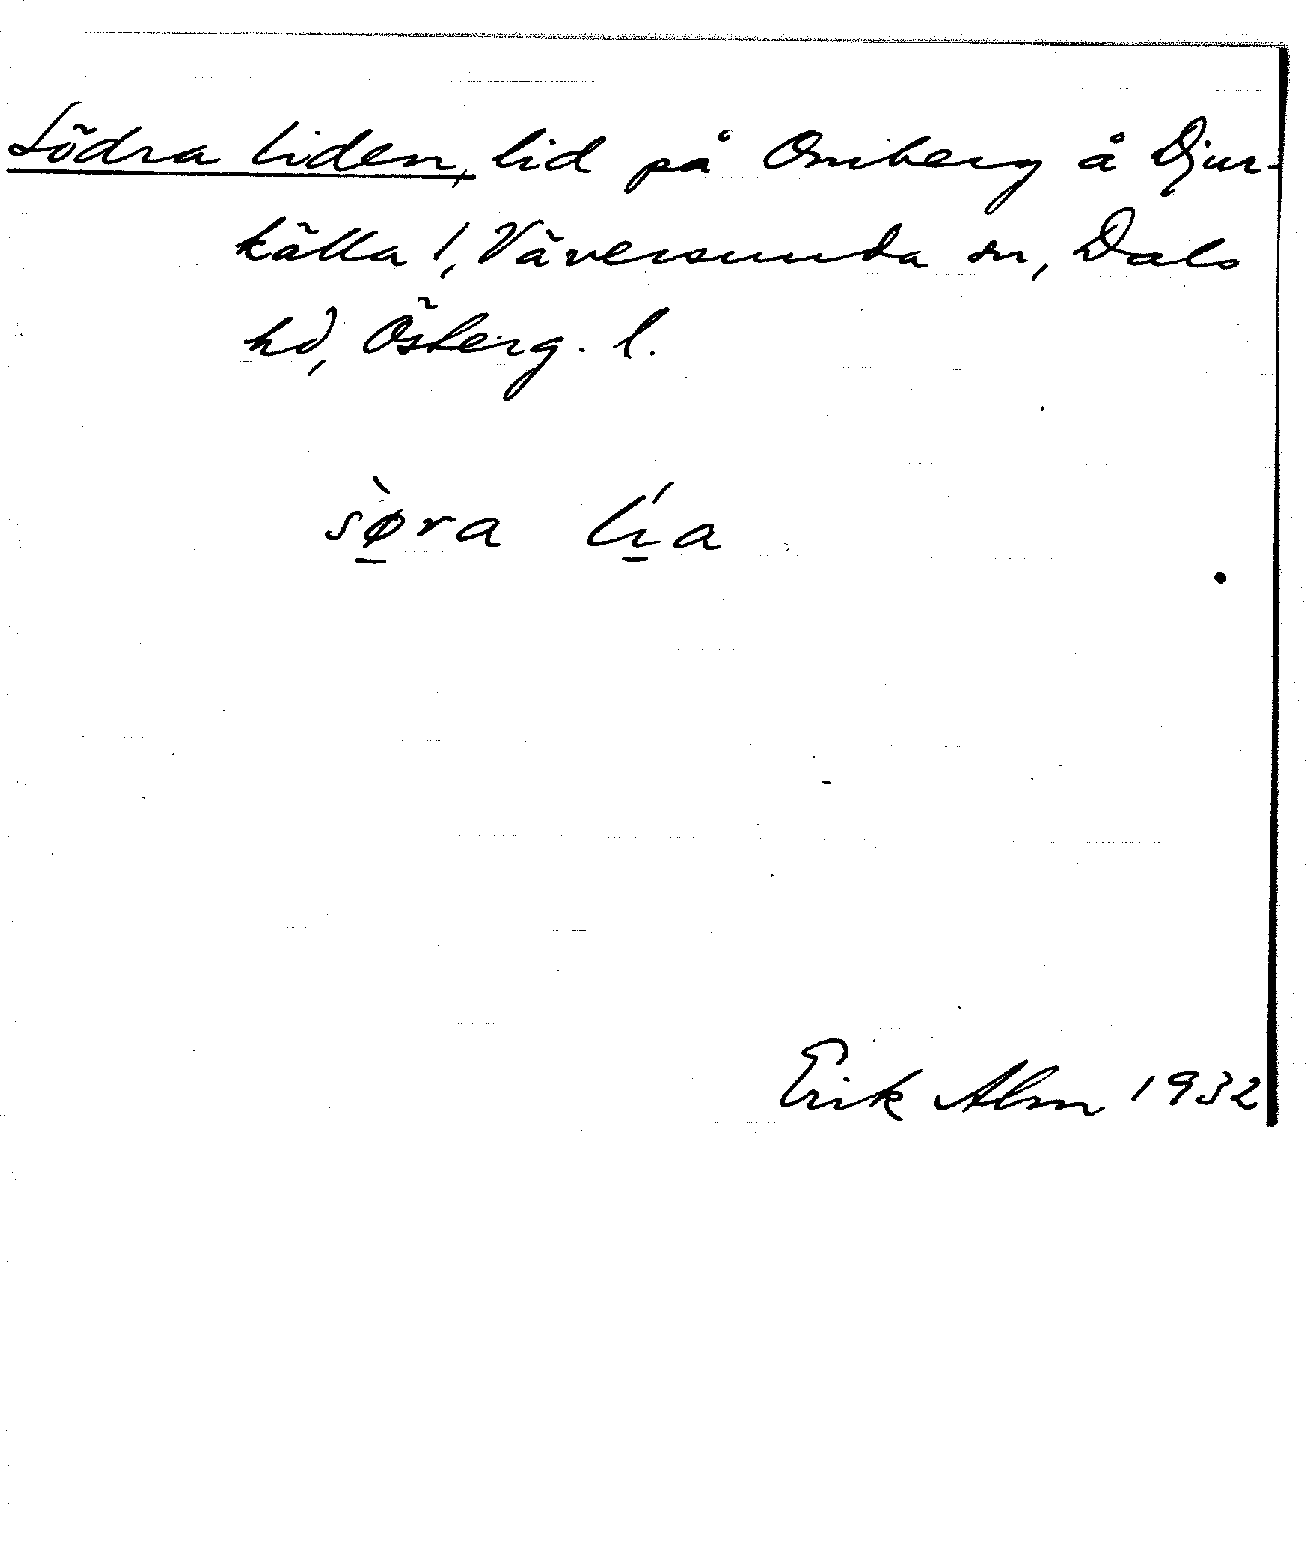 Södra liden, lid på Omberg å Djur-
källa 1, Väversunda sn, Dals
hd, Österg. l.
sø̀ra lía
Erik Alm 1932